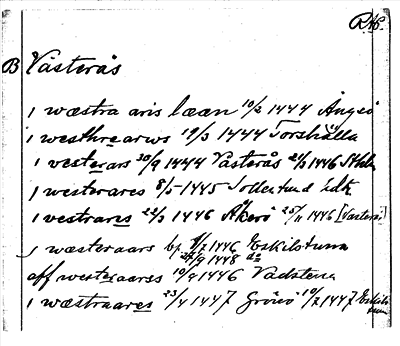 RAp.
B Västerås
i wæstra aris lææn 10/2 1444 Ängsö
i westhrearws 19/3 1444 Torshälla
i vesterars 30/9 1444 Västerås 21/3 1446 Sthlm
i westerares 8/5 1445 Södertuna
i vestrares 22/3 1446 Åkerö 25/11 1446 [Västerås]
i wæsteraars 1446 Eskilstuna
27/9 1448 do
aff westeraaress 10/9 1446 Vadstena
i wæstraares 23/4 1447 Grönö 10/2 1447 Eskilstuna